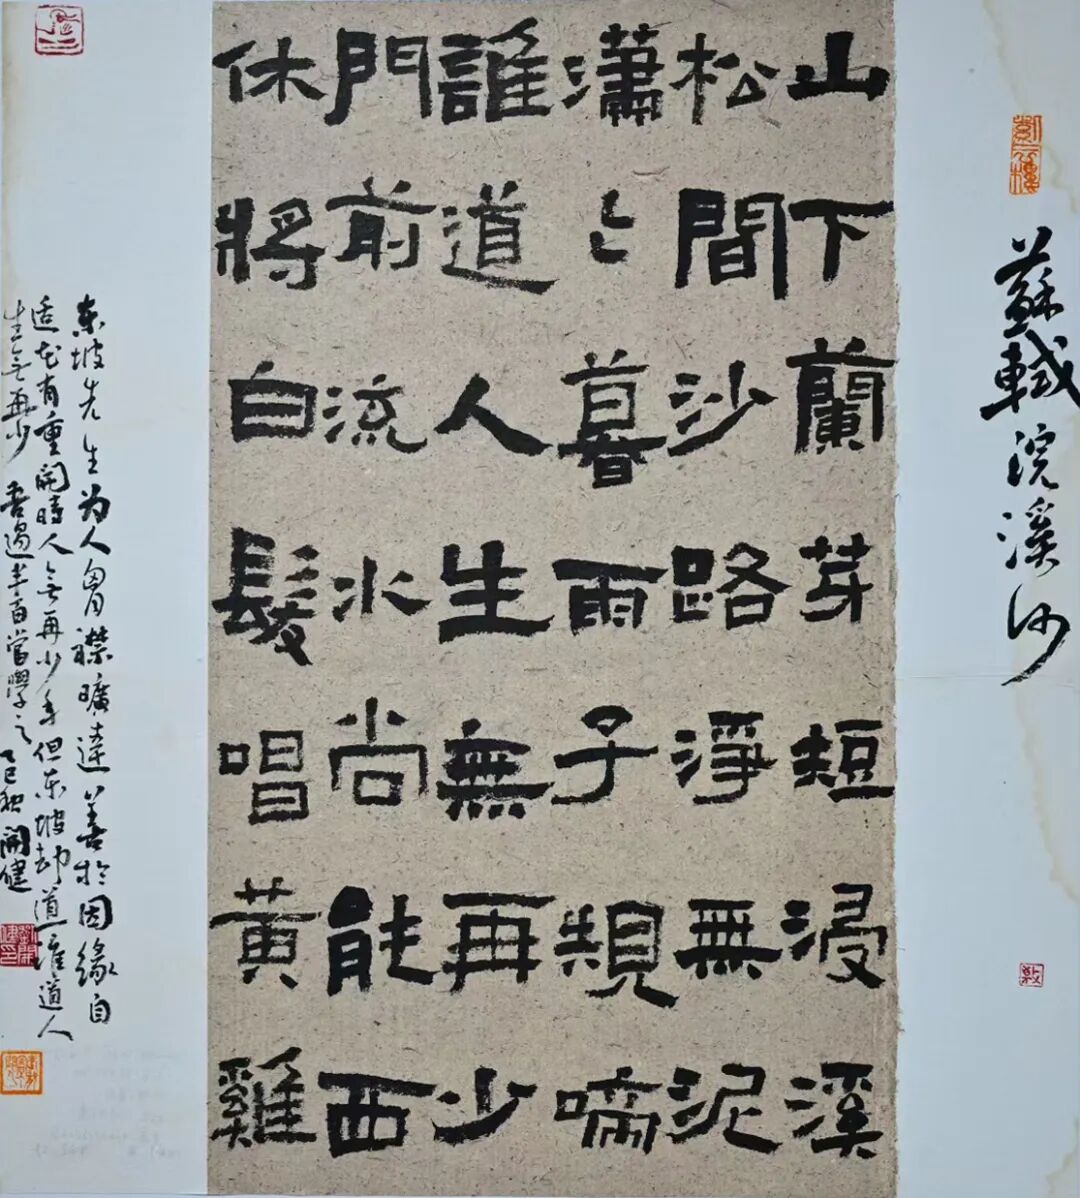 蘇軾浣溪沙
山下蘭芽短浸溪
松間沙路淨無泥
瀟〻暮雨子規啼
誰道人生無再少
門前流水尚能西
休將白髮唱黃雞
东坡先生为人胷襟曠達善於因緣自
适花有重開時人無再少年但东坡却道誰道人
生無再少吾過半百當學之乙巳秋開健
劉開健印